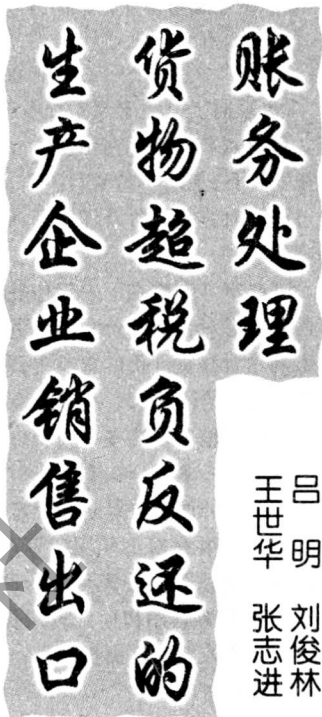 生产企业销售出口
货物超税负反还的
账务处理
吕 明 刘俊林
王世华 张志进